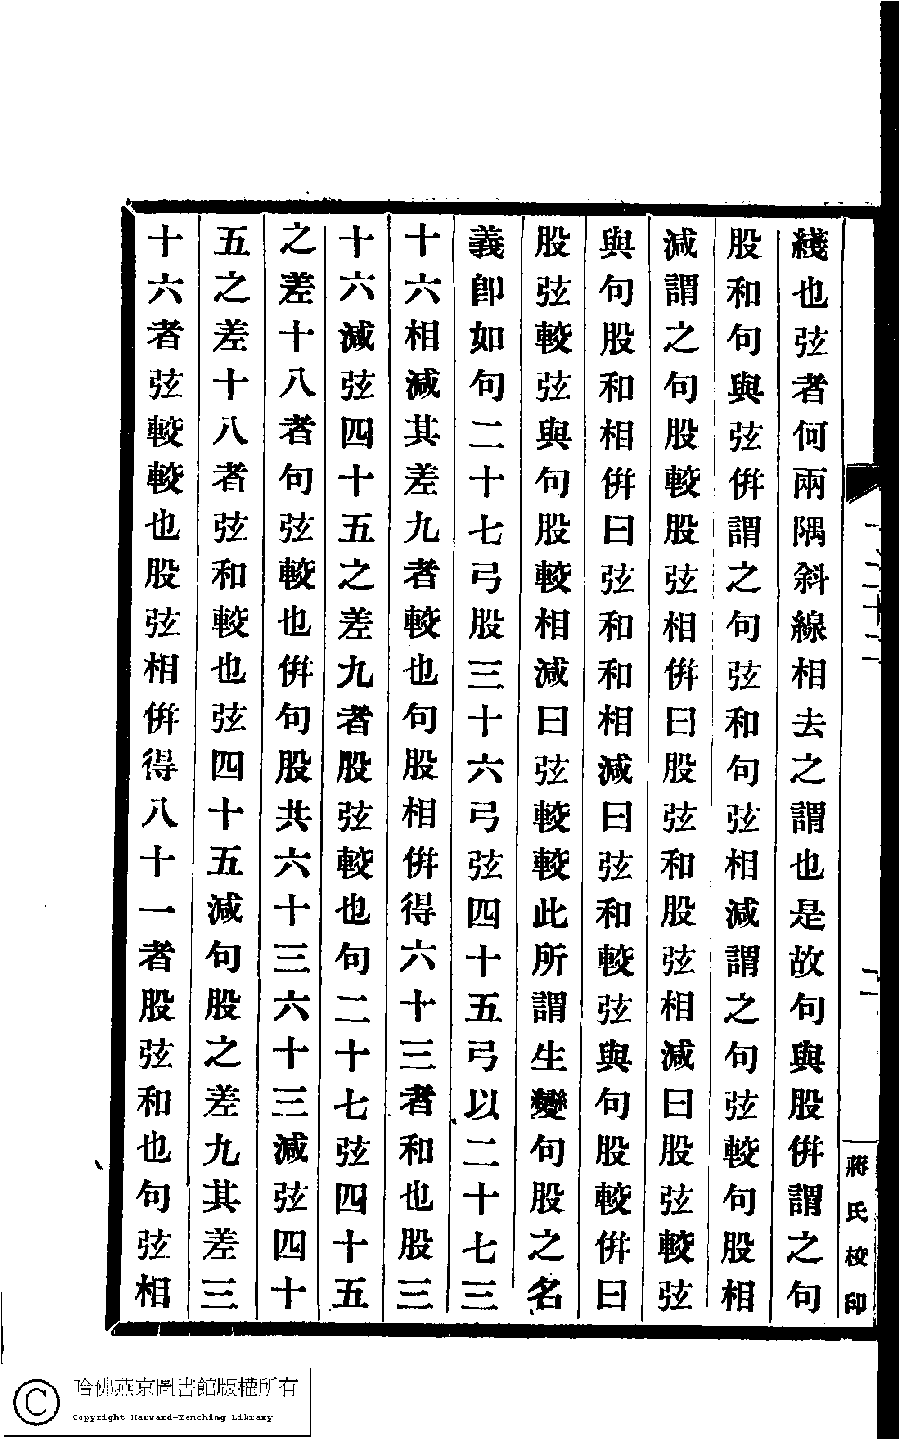 綫也弦者何兩隅斜線相去之謂也是故句與股倂謂之句
股和句與弦倂謂之句弦和句弦相減謂之句弦較句股相
減謂之句股較股弦相倂曰股弦和股弦相減曰股弦較弦
與句股和相倂曰弦和和相減曰弦和較弦與句股較倂曰
股弦較弦與句股較相減曰弦較較此所謂生變句股之名
義卽如句二十七弓股三十六弓弦四十五弓以二十七三
十六相減其差九者較也句股相倂得六十三者和也股三
十六減弦四十五之差九者股弦較也句二十七弦四十五
之差十八者句弦較也倂句股共六十三六十三減弦四十
五之差十八者弦和較也弦四十五減句股之差九其差三
十六者弦較較也股弦相倂得八十一者股弦和也句弦相
二
蔣氏校印
哈佛燕京圖書館版權所有
Copyright Harvard-Yenching Library